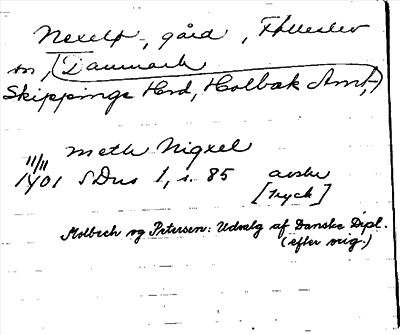 Nexelø, gård, Følleslev
sn, Danmark
Skippinge Hrd, Holbæk Amt,
meth Nigxel
11/11
1401 SDns 1, s. 85 avskr
[tryck]
Molbech og Petersen: Udvalg af Danske Dipl.
(efter orig.)